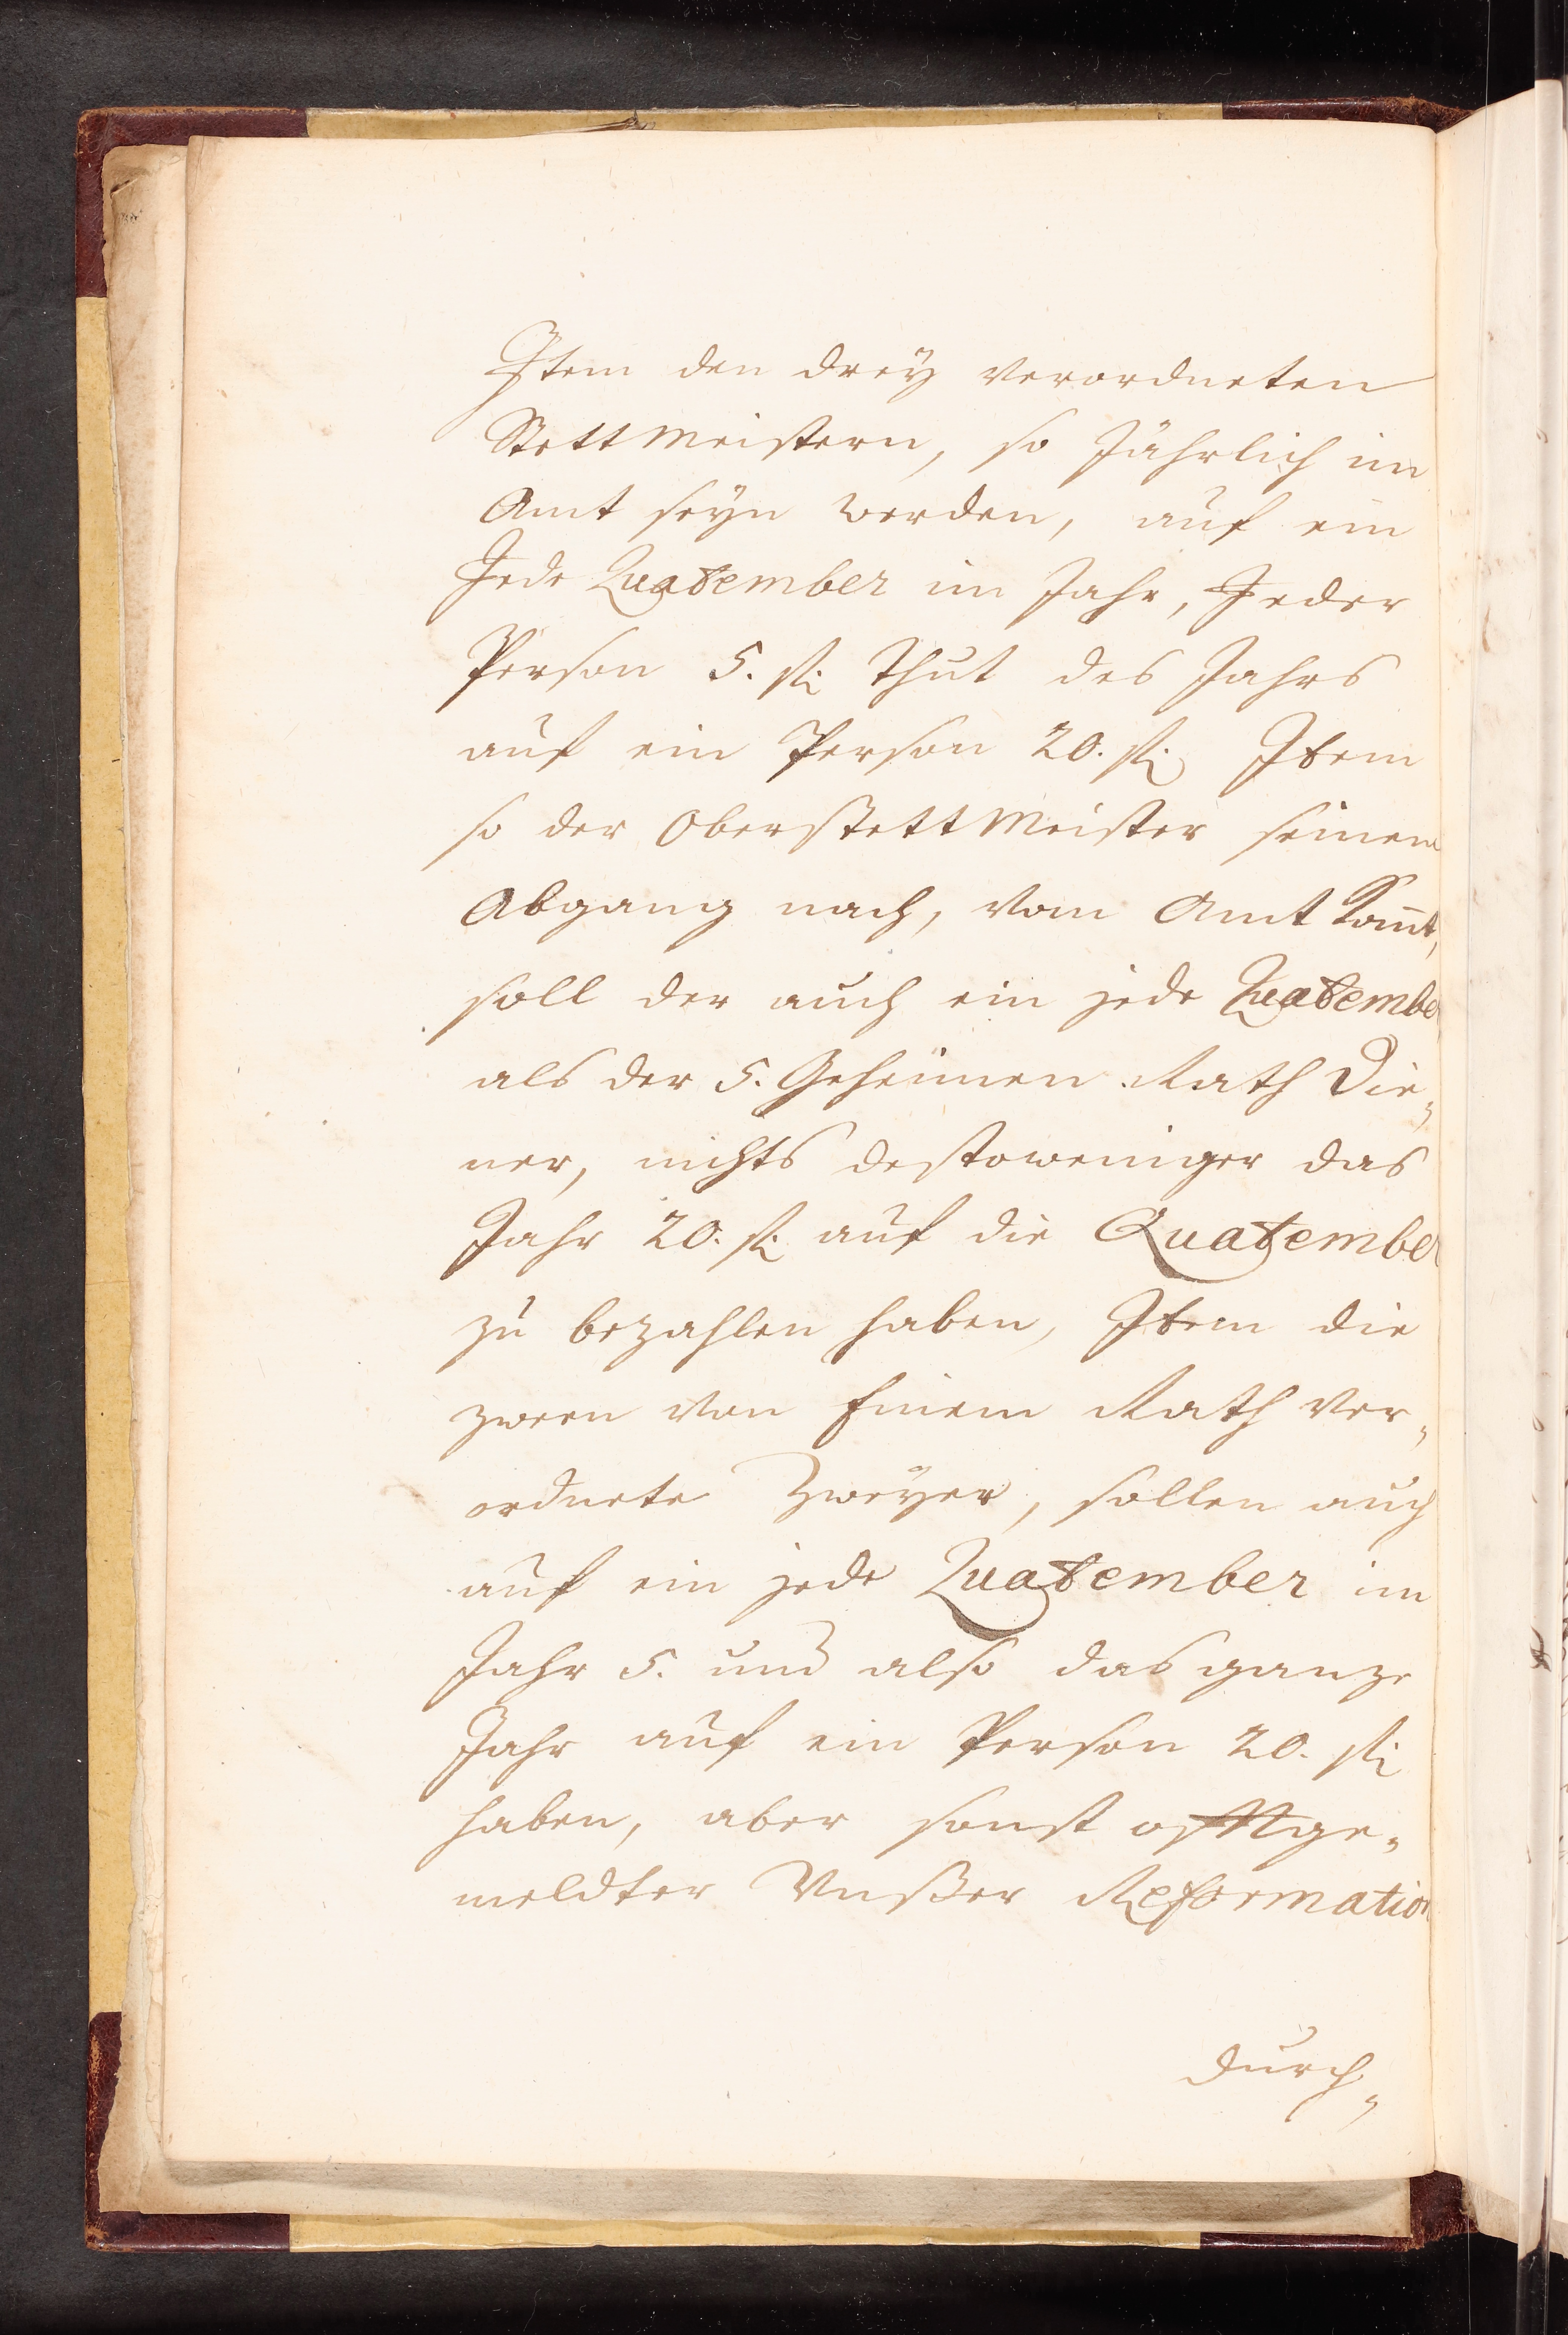 Item den dreÿ verordneten
Stettmeistern, so Jährlich im
Amt seÿn werden, auf ein
Jede Quatember im Jahr, Jeder
Person 5. fl: thut des Jahrs
auf ein Person 20. fl: Item
so der Oberstettmeister seinem
Abgang nach, vom Amt kom̄t,
soll der auch ein jede Quatember
als der 5. Geheimen Rath Die„
ner, nichts destoweniger das
Jahr 20. fl: auf die Quatember
zu bezahlen haben, Item die
zween von Einem Rath ver„
ordnete Zweÿer, sollen auch
auf ein jede Quatember im
Jahr 5. und also das ganze
Jahr auf ein Person 20. fl:
haben, aber sonst offtge„
meldter Vnßer Reformation
durch„